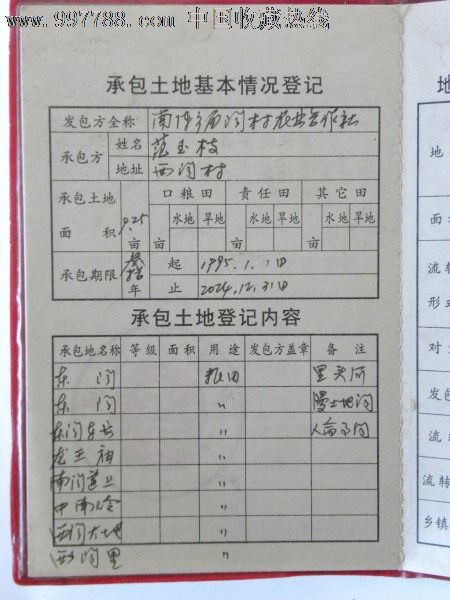 www.997788.com 中国收藏热线
承包土地基本情况登记
发包方全称 村农业合作社
承包方 姓名 范玉枝
地址 西沟村
承包土地面积 口粮田 责任田 其它田
亩 水地 旱地 亩 水地 旱地 亩 水地 旱地
承包期限 叁拾年 起 1995.1.1日
止 2024.12.31日
承包土地登记内容
承包地名称 等级 面积 用途 发包方盖章 备注
东沟 粮田 里夹河
东沟 〃
东沟东长 〃
龙王庙 〃
南沟道上 〃
中南岭 〃
西沟大地 〃
西沟里 〃
地
地
面
流转
形式
对
发包
流
流转
乡镇